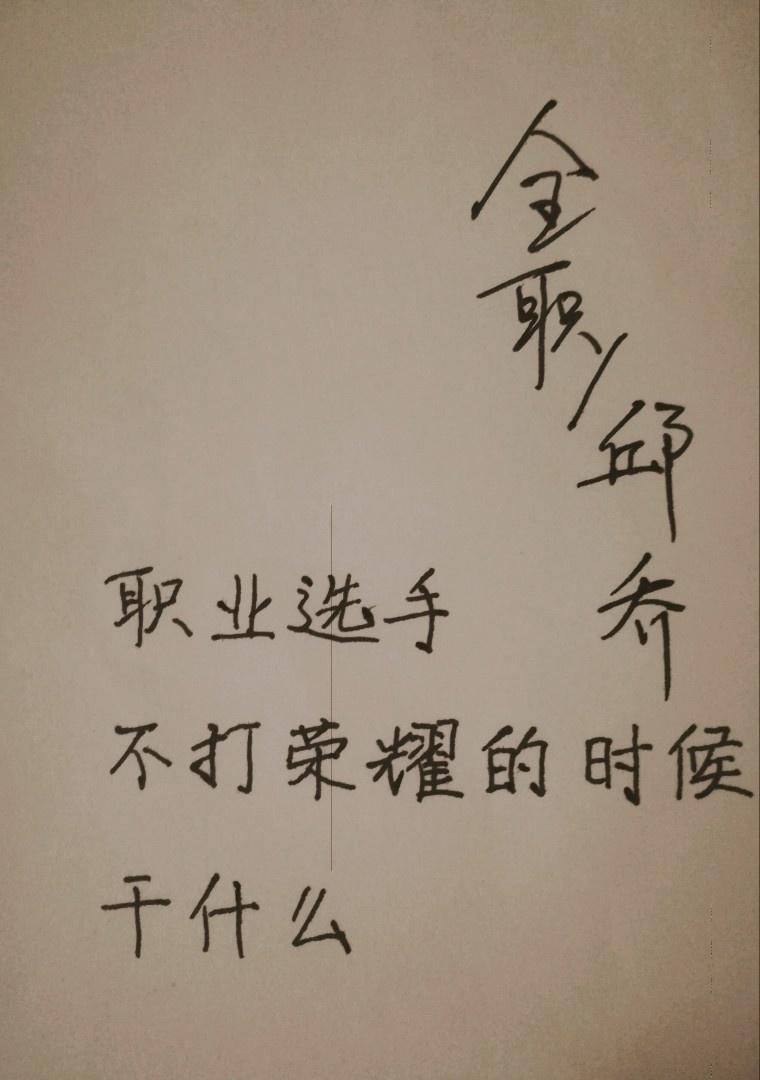 全职/邱乔
职业选手
不打荣耀的时候
干什么